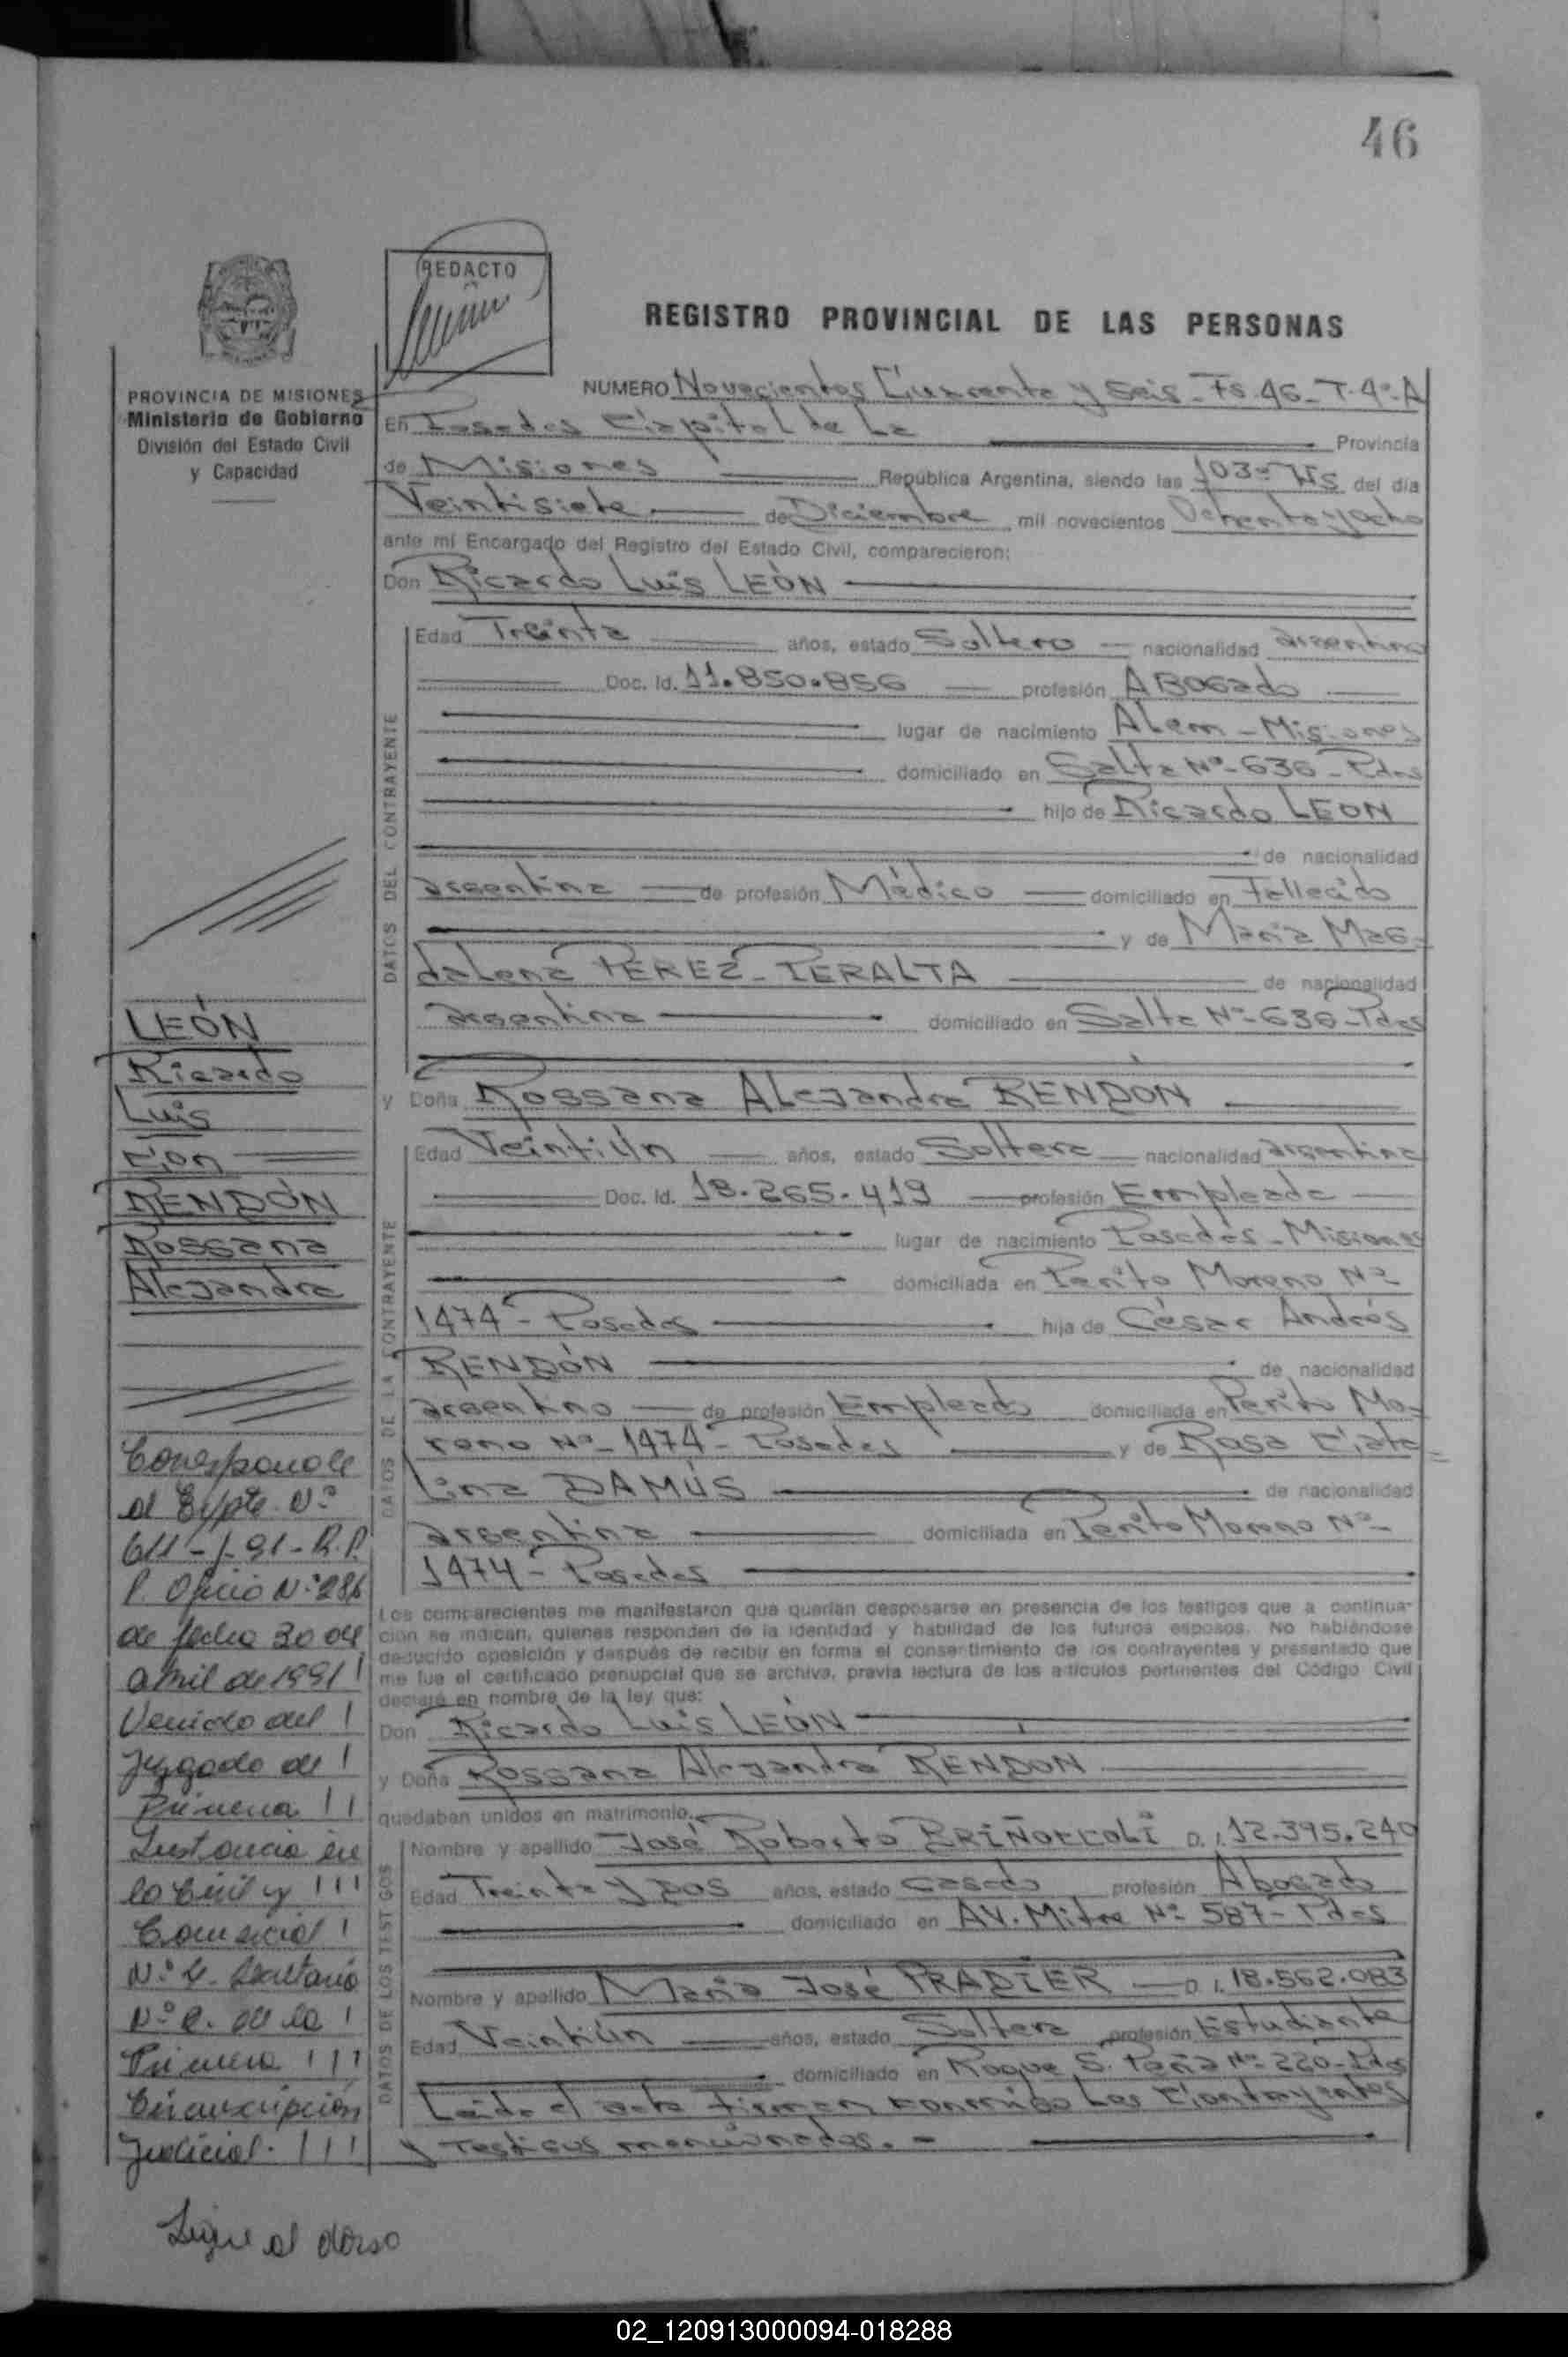 46
REDACTO
REGISTRO PROVINCIAL DE LAS PERSONAS
PROVINCIA DE MISIONES
Ministerio de Gobierno
División del Estado Civil
y Capacidad
NUMERO Novecientos Cuarenta y Seis - Fs 46 - T. 4º - A
En Posadas Capital de La Provincia
de Misiones República Argentina, siendo las 1030 Hs del día
Veintisiete de Diciembre mil novecientos Ochenta y ocho
ante mí Encargado del Registro del Estado Civil, comparecieron:
Don Ricardo Luis LEÓN
DATOS DEL CONTRAYENTE
Edad Treinta años, estado Soltero nacionalidad argentino
Doc. Id. 11.850.856 profesión ABOGado
lugar de nacimiento Alem - Misiones
domiciliado en Salta Nº 636 - Pdas
hijo de Ricardo LEON
de nacionalidad
argentina de profesión Médico domiciliado en Fallecido
y de María Mag-
dalena PEREZ - PERALTA de nacionalidad
argentina domiciliado en Salta Nº 636 - Pdas
y Doña Rossana Alejandra RENDON
DATOS DE LA CONTRAYENTE
Edad Veintiún años, estado Soltera nacionalidad argentina
Doc. Id. 18.265.419 profesión Empleada
lugar de nacimiento Posadas - Misiones
domiciliada en Perito Moreno Nº
1474 - Posadas hija de César Andrés
RENDÓN de nacionalidad
argentino de profesión Empleado domiciliada en Perito Mo-
reno Nº 1474 - Posadas y de Rosa Cata-
lina DAMÚS de nacionalidad
argentina domiciliada en Perito Moreno Nº
1474 - Posadas
Los comparecientes me manifestaron que querían desposarse en presencia de los testigos que a continua-
ción se indican, quienes responden de la identidad y habilidad de los futuros esposos. No habiéndose
deducido oposición y después de recibir en forma el consentimiento de los contrayentes y presentado que
me fue el certificado prenupcial que se archiva, previa lectura de los artículos pertinentes del Código Civil
declaré en nombre de la ley que:
Don Ricardo Luis LEÓN
y Doña Rossana Alejandra RENDON
quedaban unidos en matrimonio.
DATOS DE LOS TESTIGOS
Nombre y apellido José Roberto BRIÑOCCOLI D. I. 12.395.240
Edad Treinta y Dos años, estado casado profesión Abogado
domiciliado en AV. Mitre Nº 587 - Pdas
Nombre y apellido María José PRADIER D. I. 18.562.083
Edad Veintiún años, estado Soltera profesión Estudiante
domiciliado en Roque S. Peña Nº 220 - Pdas
Leída el acta firman conmigo Los Contrayentes
y Testigos mencionados. -
LEÓN
Ricardo
Luis
Con
RENDÓN
Rossana
Alejandra
Corresponde
al Expte. Nº
611 - J - 91 - R.P.
P. Oficio Nº 286
de fecha 30 de
abril de 1991
Venido del
Juzgado de
Primera
Instancia en
lo Civil y
Comercial
Nº 4 - Secretaria
Nº 2. de la
Primera
Circunscripción
Judicial.
Sigue al dorso
02_120913000094-018288